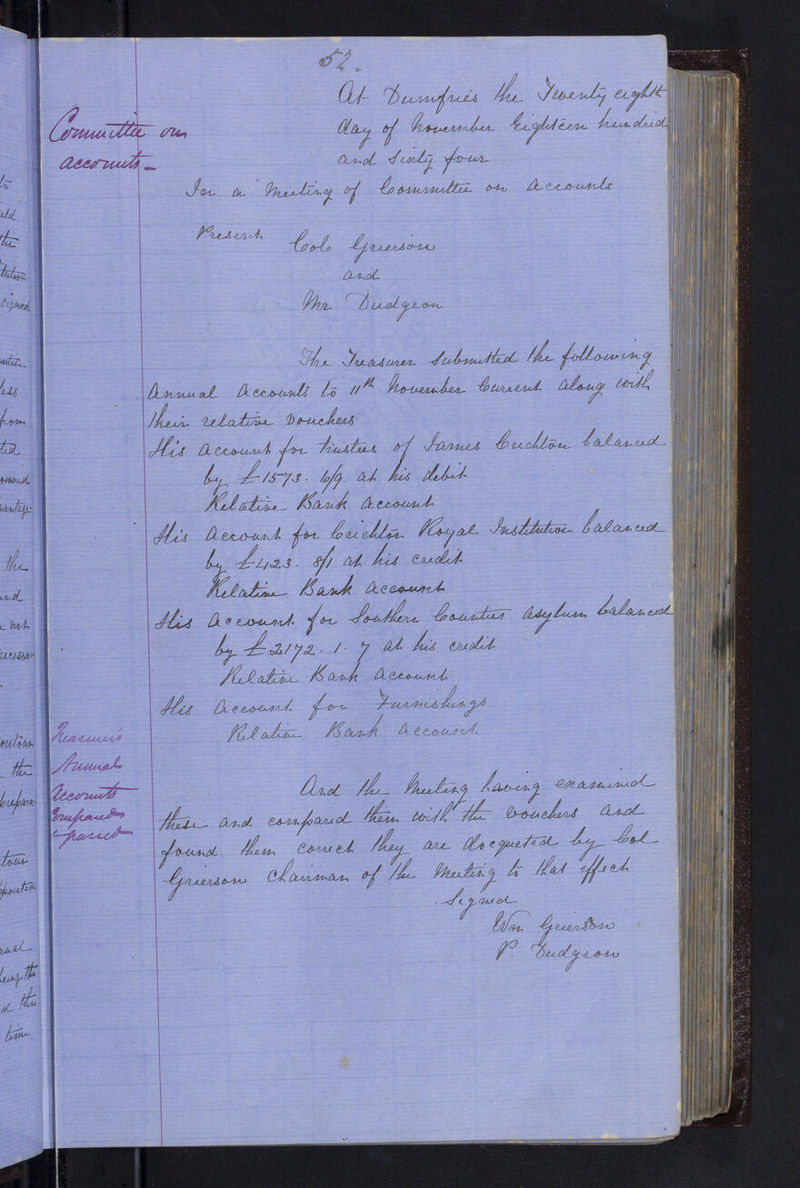 52.
At Dumfries the Twenty eighth
day of November Eighteen hundred
and Sixty four
Committee on
accounts
In a Meeting of Committee on Accounts
Present Col Grierson
and
Mr Dudgeon
The Treasurer submitted the following
Annual Accounts to 11th November Current along with
their relative vouchers
His account for trustees of James Crichton balanced
by £1573. 6/9 at his debit
Relative Bank Account
His Account for Crichton Royal Institution balanced
by £423. 8/1 at his credit
Relative Bank Account
His Account for Southern Counties Asylum balanced
by £2172. 1. 7 at his credit
Relative Bank Account
His Account for Furnishings
Relative Bank Account
Treasurer's
Annual
Accounts
Compared
& passed
And the Meeting having examined
these and compared them with the vouchers and
found them correct they are docqueted by Col
Grierson Chairman of the Meeting to that effect
Signed
Wm Grierson
P. Dudgeon